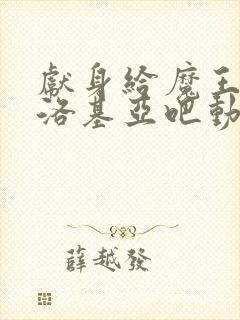 獻身給魔王
洛基亞吧動
薛越發